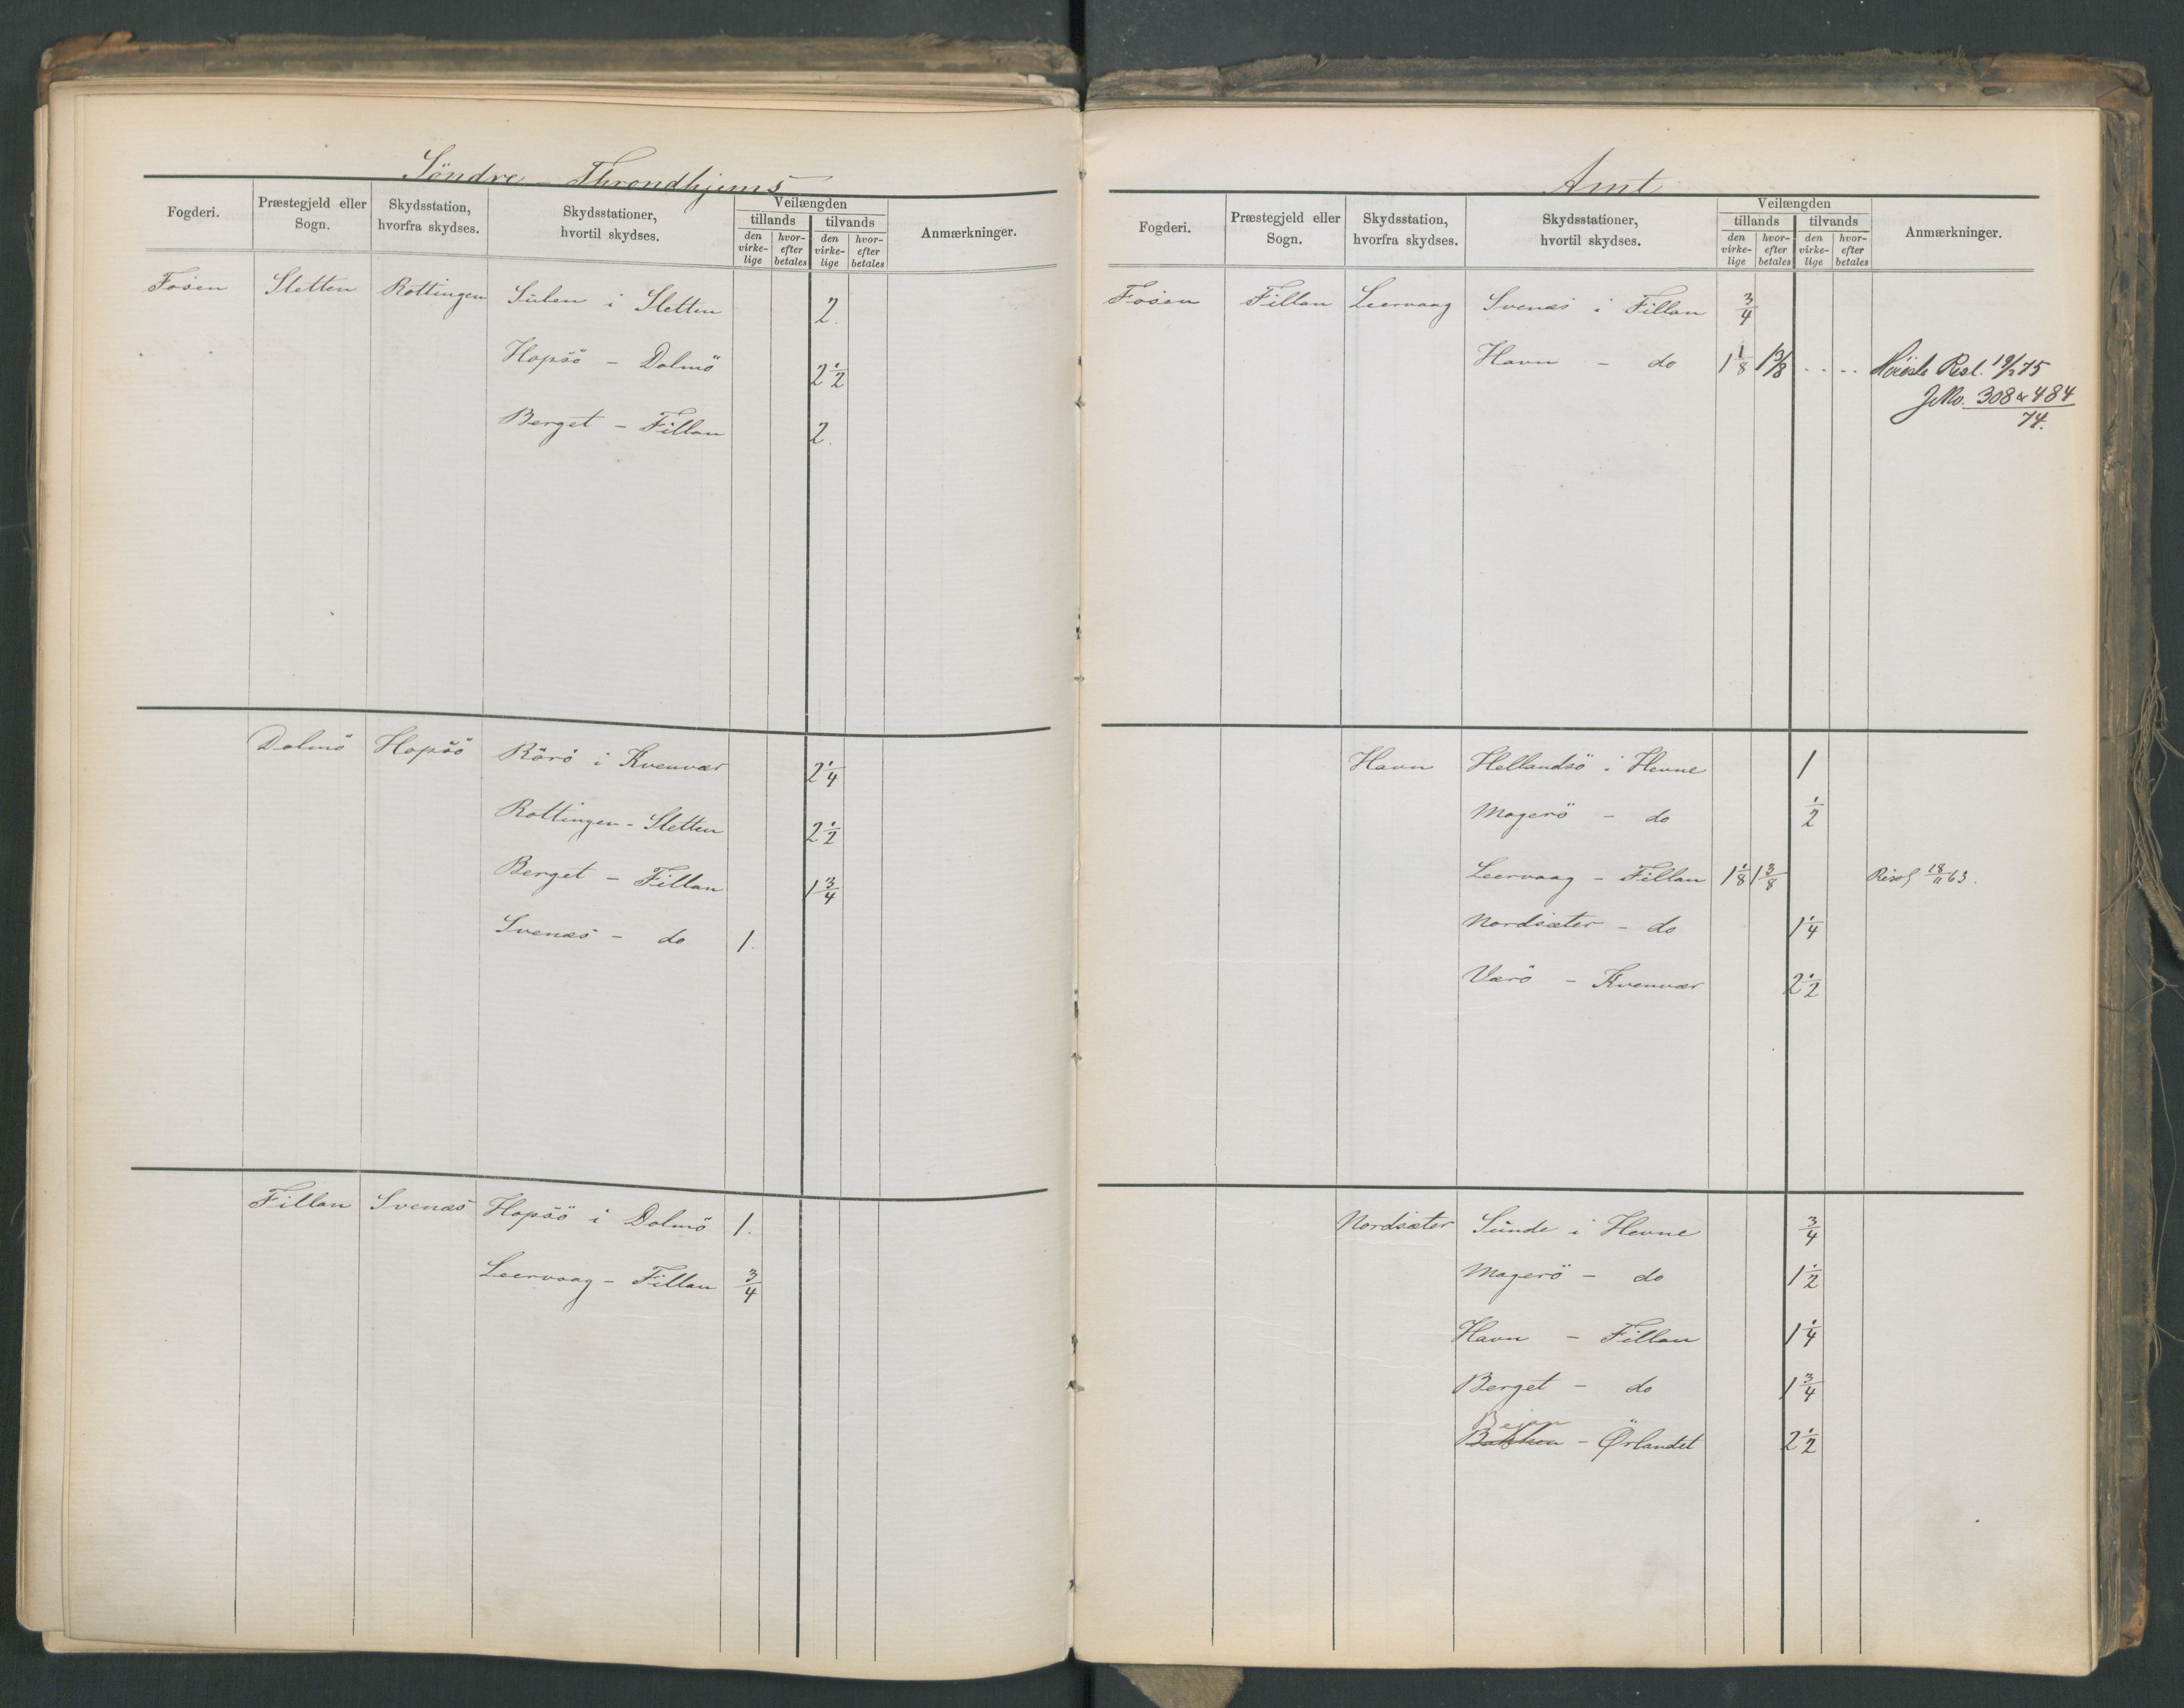 Söndre - Throndhjems
Fogderi. Præstegjeld eller Sogn. Skydsstation, hvorfra skydses. Skydsstationer, hvortil skydses. Veilængden tillands den virke-lige hvor-efter betales tilvands den virke-lige hvor-efter betales Anmærkninger.
Fosen Sletten Rottingen Sulen i Sletten 2.
Hopsö - Dolmö 2 1/2
Berget - Fillan 2.
Dolmö Hopsö Rörö i Kvenvær 2 1/4
Rottingen - Sletten 2 1/2
Berget - Fillan 1 3/4
Svenæs - do 1.
Fillan Svenæs Hopsö i Dolmö 1.
Leervaag - Fillan 3/4
Amt
Fogderi. Præstegjeld eller Sogn. Skydsstation, hvorfra skydses. Skydsstationer, hvortil skydses. Veilængden tillands den virke-lige hvor-efter betales tilvands den virke-lige hvor-efter betales Anmærkninger.
Fosen Fillan Leervaag Svenæs i Fillan 3/4
Havn - do 1 1/8 1 3/8 . . . . Höieste Resl. 19/2 75
JNo. 308 & 484
74.
Havn Hellandsö i Hevne 1
Magerö - do 1/2
Leervaag - Fillan 1 1/8 1 3/8 Resol 18/11 63.
Nordsæter - do 1 1/4
Værö - Kvenvær 2 1/2
Nordsæter Sunde i Hevne 3/4
Magerö - do 1 1/2
Havn - Fillan 1 1/4
Berget - do 1 3/4
Bejan
Bakken - Ørlandet 2 1/2